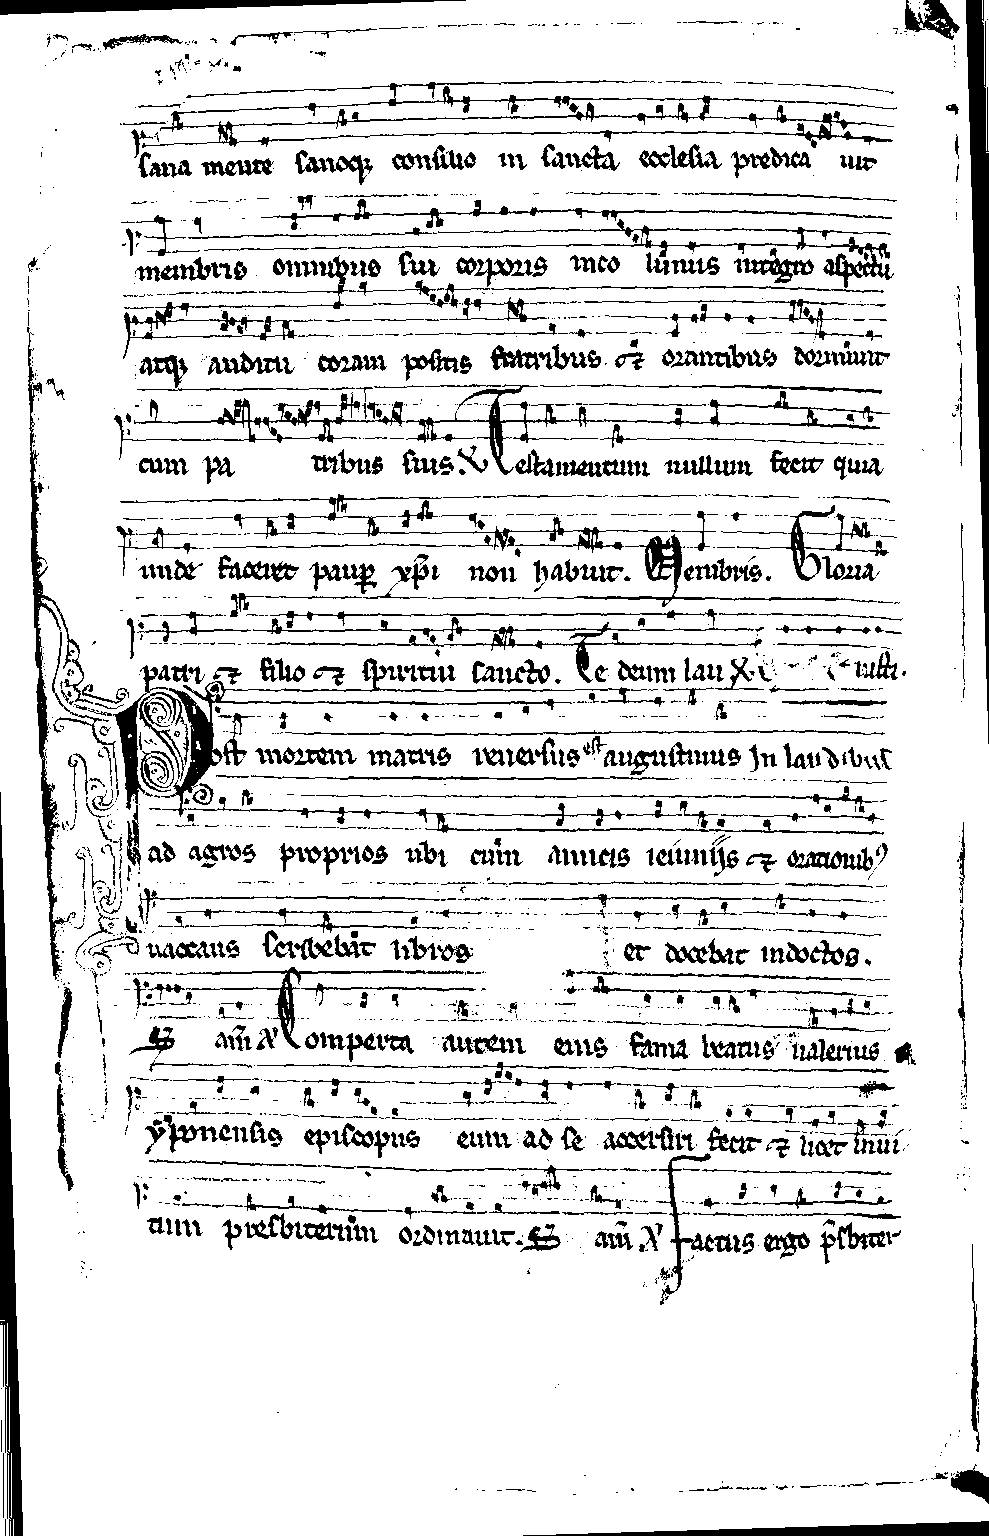 sana mente sanoq; consilio in sancta ecclesia predica uit
membris omnibus sui corporis inco lumis integro aspectu
atq; auditu coram positis fratribus et orantibus dormiuit
cum pa tribus suis. V Testamentum nullum fecit quia
unde faceret paup xpi non habuit. Menbris. Gloria
patri et filio et spiritui sancto. Te deum lau V.
Post mortem matris reuersus est augustinus In laudibus
ad agros proprios ubi cum amicis ieiuniis et orationib9
uaccans scribebat libros et docebat indoctos.
am V Comperta autem eius fama beatus ualerius
yponensis episcopus eum ad se accersiri fecit et licet inui
tum presbiterium ordinauit. am V Factus ergo psbiter